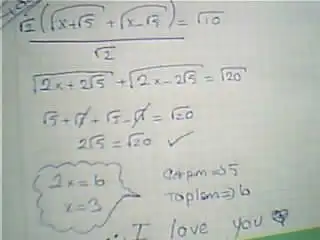 √2 (√x+√5 + √x-√5) = √10
√2
√2x+2√5 + √2x-2√5 = √20
√5+√1+√5-√1 = √20
2√5 = √20 ✓
2x = 6
x = 3
Çarpım => 5
Toplam => 6
I love you